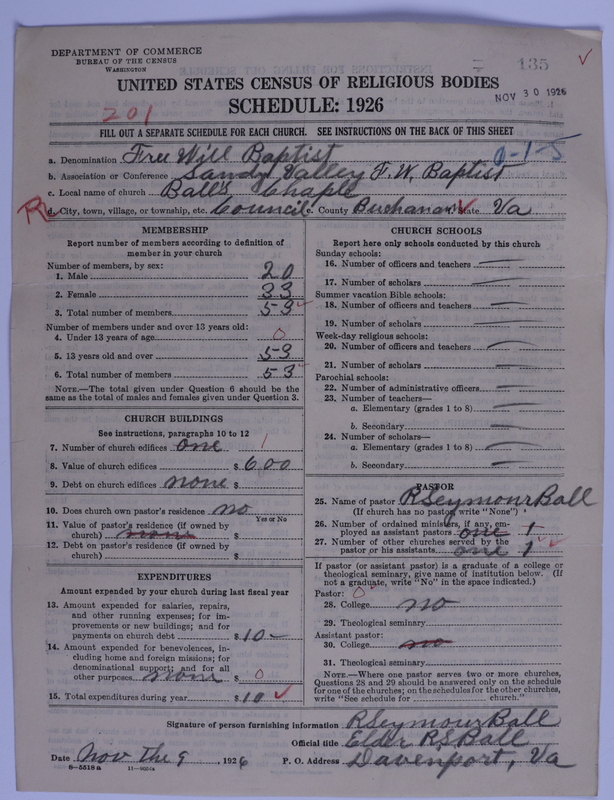 DEPARTMENT OF COMMERCE
BUREAU OF THE CENSUS
WASHINGTON
135
UNITED STATES CENSUS OF RELIGIOUS BODIES
NOV 30 1926
SCHEDULE: 1926
201
FILL OUT A SEPARATE SCHEDULE FOR EACH CHURCH. SEE INSTRUCTIONS ON THE BACK OF THIS SHEET
a. Denomination Free Will Baptist 0-1-5
b. Association or Conference Sandy Valley F. W. Baptist
c. Local name of church Ball's Chaple
d. City, town, village, or township, etc. Council County Buchanan State Va
MEMBERSHIP
Report number of members according to definition of
member in your church
Number of members, by sex:
1. Male 20
2. Female 33
3. Total number of members 53
Number of members under and over 13 years old:
4. Under 13 years of age 0
5. 13 years old and over 53
6. Total number of members 53
NOTE.—The total given under Question 6 should be
same as the total of males and females given under Question 3.
CHURCH BUILDINGS
See instructions, paragraphs 10 to 12
7. Number of church edifices one 1
8. Value of church edifices $ 600
9. Debt on church edifices none $
10. Does church own pastor's residence no
Yes or No
11. Value of pastor's residence (if owned by
church) none $
12. Debt on pastor's residence (if owned by
church) $
EXPENDITURES
Amount expended by your church during last fiscal year
13. Amount expended for salaries, repairs,
and other running expenses; for im-
provements or new buildings; and for
payments on church debt $ 10 —
14. Amount expended for benevolences, in-
cluding home and foreign missions; for
denominational support; and for all
other purposes none $ 0
15. Total expenditures during year $ 10
CHURCH SCHOOLS
Report here only schools conducted by this church
Sunday schools:
16. Number of officers and teachers —
17. Number of scholars —
Summer vacation Bible schools:
18. Number of officers and teachers —
19. Number of scholars —
Week-day religious schools:
20. Number of officers and teachers —
21. Number of scholars —
Parochial schools:
22. Number of administrative officers —
23. Number of teachers—
a. Elementary (grades 1 to 8) —
b. Secondary —
24. Number of scholars—
a. Elementary (grades 1 to 8) —
b. Secondary —
PASTOR
25. Name of pastor R Seymour Ball
(If church has no pastor, write "None")
26. Number of ordained ministers, if any, em-
ployed as assistant pastors one 1
27. Number of other churches served by the
pastor or his assistants one 1
If pastor (or assistant pastor) is a graduate of a college or
theological seminary, give name of institution below. (If
not a graduate, write "No" in the space indicated.)
Pastor: 0
28. College no
29. Theological seminary
Assistant pastor:
30. College no
31. Theological seminary
NOTE.—Where one pastor serves two or more churches,
Questions 28 and 29 should be answered only on the schedule
for one of the churches; on the schedules for the other churches,
write "See schedule for church."
Signature of person furnishing information R Seymour Ball
Official title Elder R S Ball
Date Nov the 9, 1926 P. O. Address Davenport, Va
8-5518 a